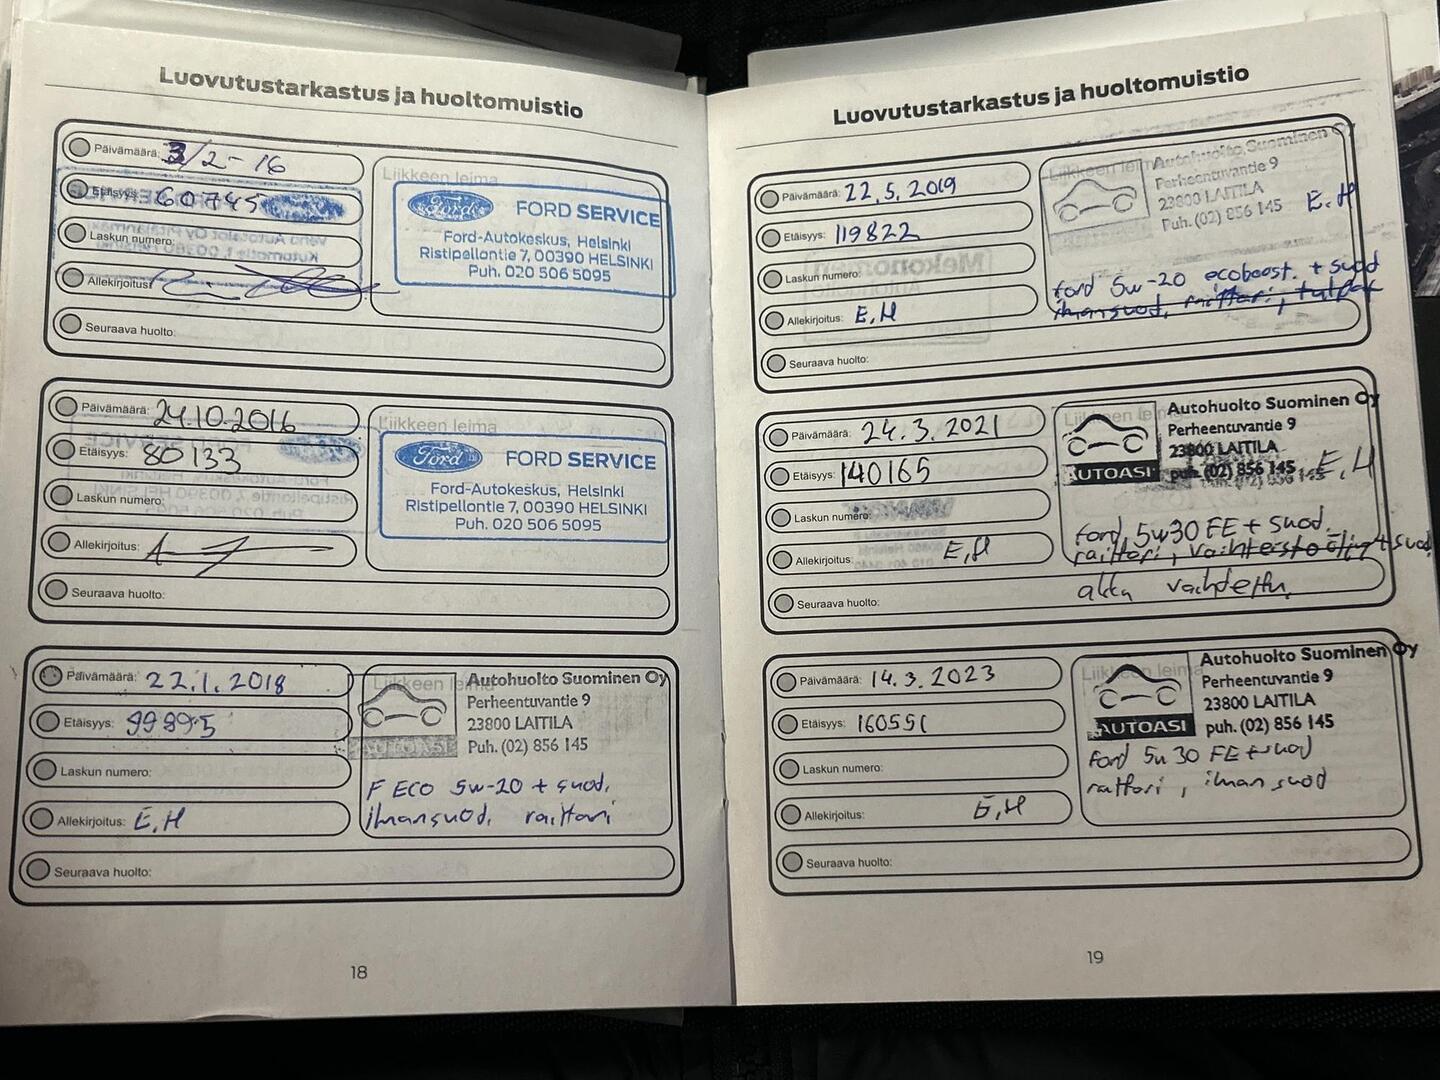 Luovutustarkastus ja huoltomuistio
Päivämäärä: 3/2-16
Etäisyys: 60745
Laskun numero:
Allekirjoitus:
Seuraava huolto:
Liikkeen leima
Ford
FORD SERVICE
Ford-Autokeskus, Helsinki
Ristipellontie 7, 00390 HELSINKI
Puh. 020 506 5095
Päivämäärä: 24.10.2016
Etäisyys: 80133
Laskun numero:
Allekirjoitus:
Seuraava huolto:
Liikkeen leima
Ford
FORD SERVICE
Ford-Autokeskus, Helsinki
Ristipellontie 7, 00390 HELSINKI
Puh. 020 506 5095
Päivämäärä: 22.1.2018
Etäisyys: 99895
Laskun numero:
Allekirjoitus: E.H
Seuraava huolto:
Liikkeen leima
AUTOASI
Autohuolto Suominen Oy
Perheentuvantie 9
23800 LAITILA
Puh. (02) 856 145
F ECO 5w-20 + suod.
ilmansuod. raittari
18
Luovutustarkastus ja huoltomuistio
Päivämäärä: 22.5.2019
Etäisyys: 119822
Laskun numero:
Allekirjoitus: E.H
Seuraava huolto:
Liikkeen leima
Autohuolto Suominen Oy
Perheentuvantie 9
23800 LAITILA
Puh. (02) 856 145
E.H
ford 5w-20 ecoboost. + suod
ilmansuod, raittari, tulpat
Päivämäärä: 24.3.2021
Etäisyys: 140165
Laskun numero:
Allekirjoitus: E.H
Seuraava huolto:
Liikkeen leima
AUTOASI
Autohuolto Suominen Oy
Perheentuvantie 9
23800 LAITILA
puh. (02) 856 145
E.H
ford 5w30 FE + suod.
raittari, vaihteisto öljyt + suod
akku vaihdettu.
Päivämäärä: 14.3.2023
Etäisyys: 160551
Laskun numero:
Allekirjoitus: E.H
Seuraava huolto:
Liikkeen leima
AUTOASI
Autohuolto Suominen Oy
Perheentuvantie 9
23800 LAITILA
puh. (02) 856 145
Ford 5w 30 FE + suod
raittari, ilman suod
19